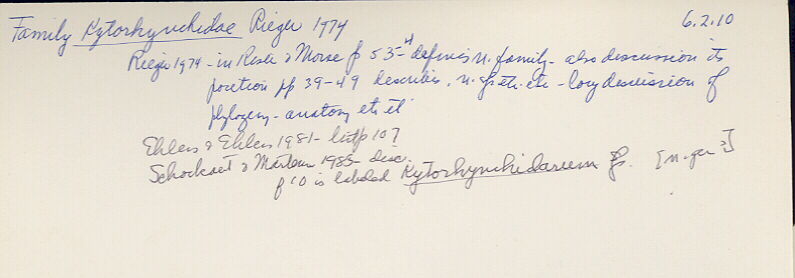 Family Kytorhynchidae Rieger 1974 6.2.10
Rieger 1974 - in Riser & Morse p 53- defines n. family - also discussion its
position pp 39-49 describes, n. sp etc. etc - Long discussion of
phylogeny - anatomy etc etc
Ehlers & Ehlers 1981 - p 107
Schockaert & Martens 1985 - disc.
p 10 is labeled Kytorhynchidarum [n. gen?]